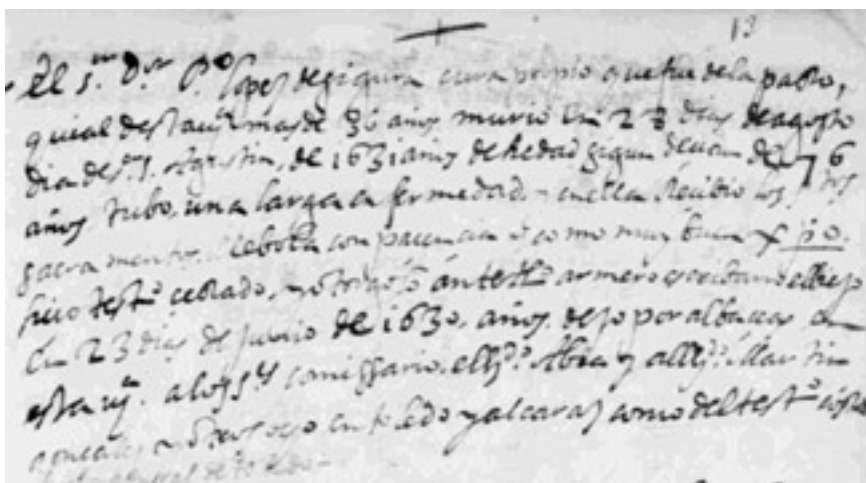 13
El s.r D.or P.o lopez de segura cura propio que fue de la paRo,
quial desta uª mas de 36 años murio En 28 dias de agosto
dia de s. Agustin, de 1631 años de hedad sigun decian de 76
años tubo, una larga enfermedad - en ella Recibio los s.tos
sacramentos, con paciencia como muy buen xp̃no.
hiço test.o cerrado, y otorgolo ante armero escribano el biejo
En 23 dias de Junio de 1630, años. dejo por albaceas en
esta uª. a los s.res comissario, el liz.do Abia y al liz.do Martin
gonçales y otros dos en toledo y alcaraz como del test.o